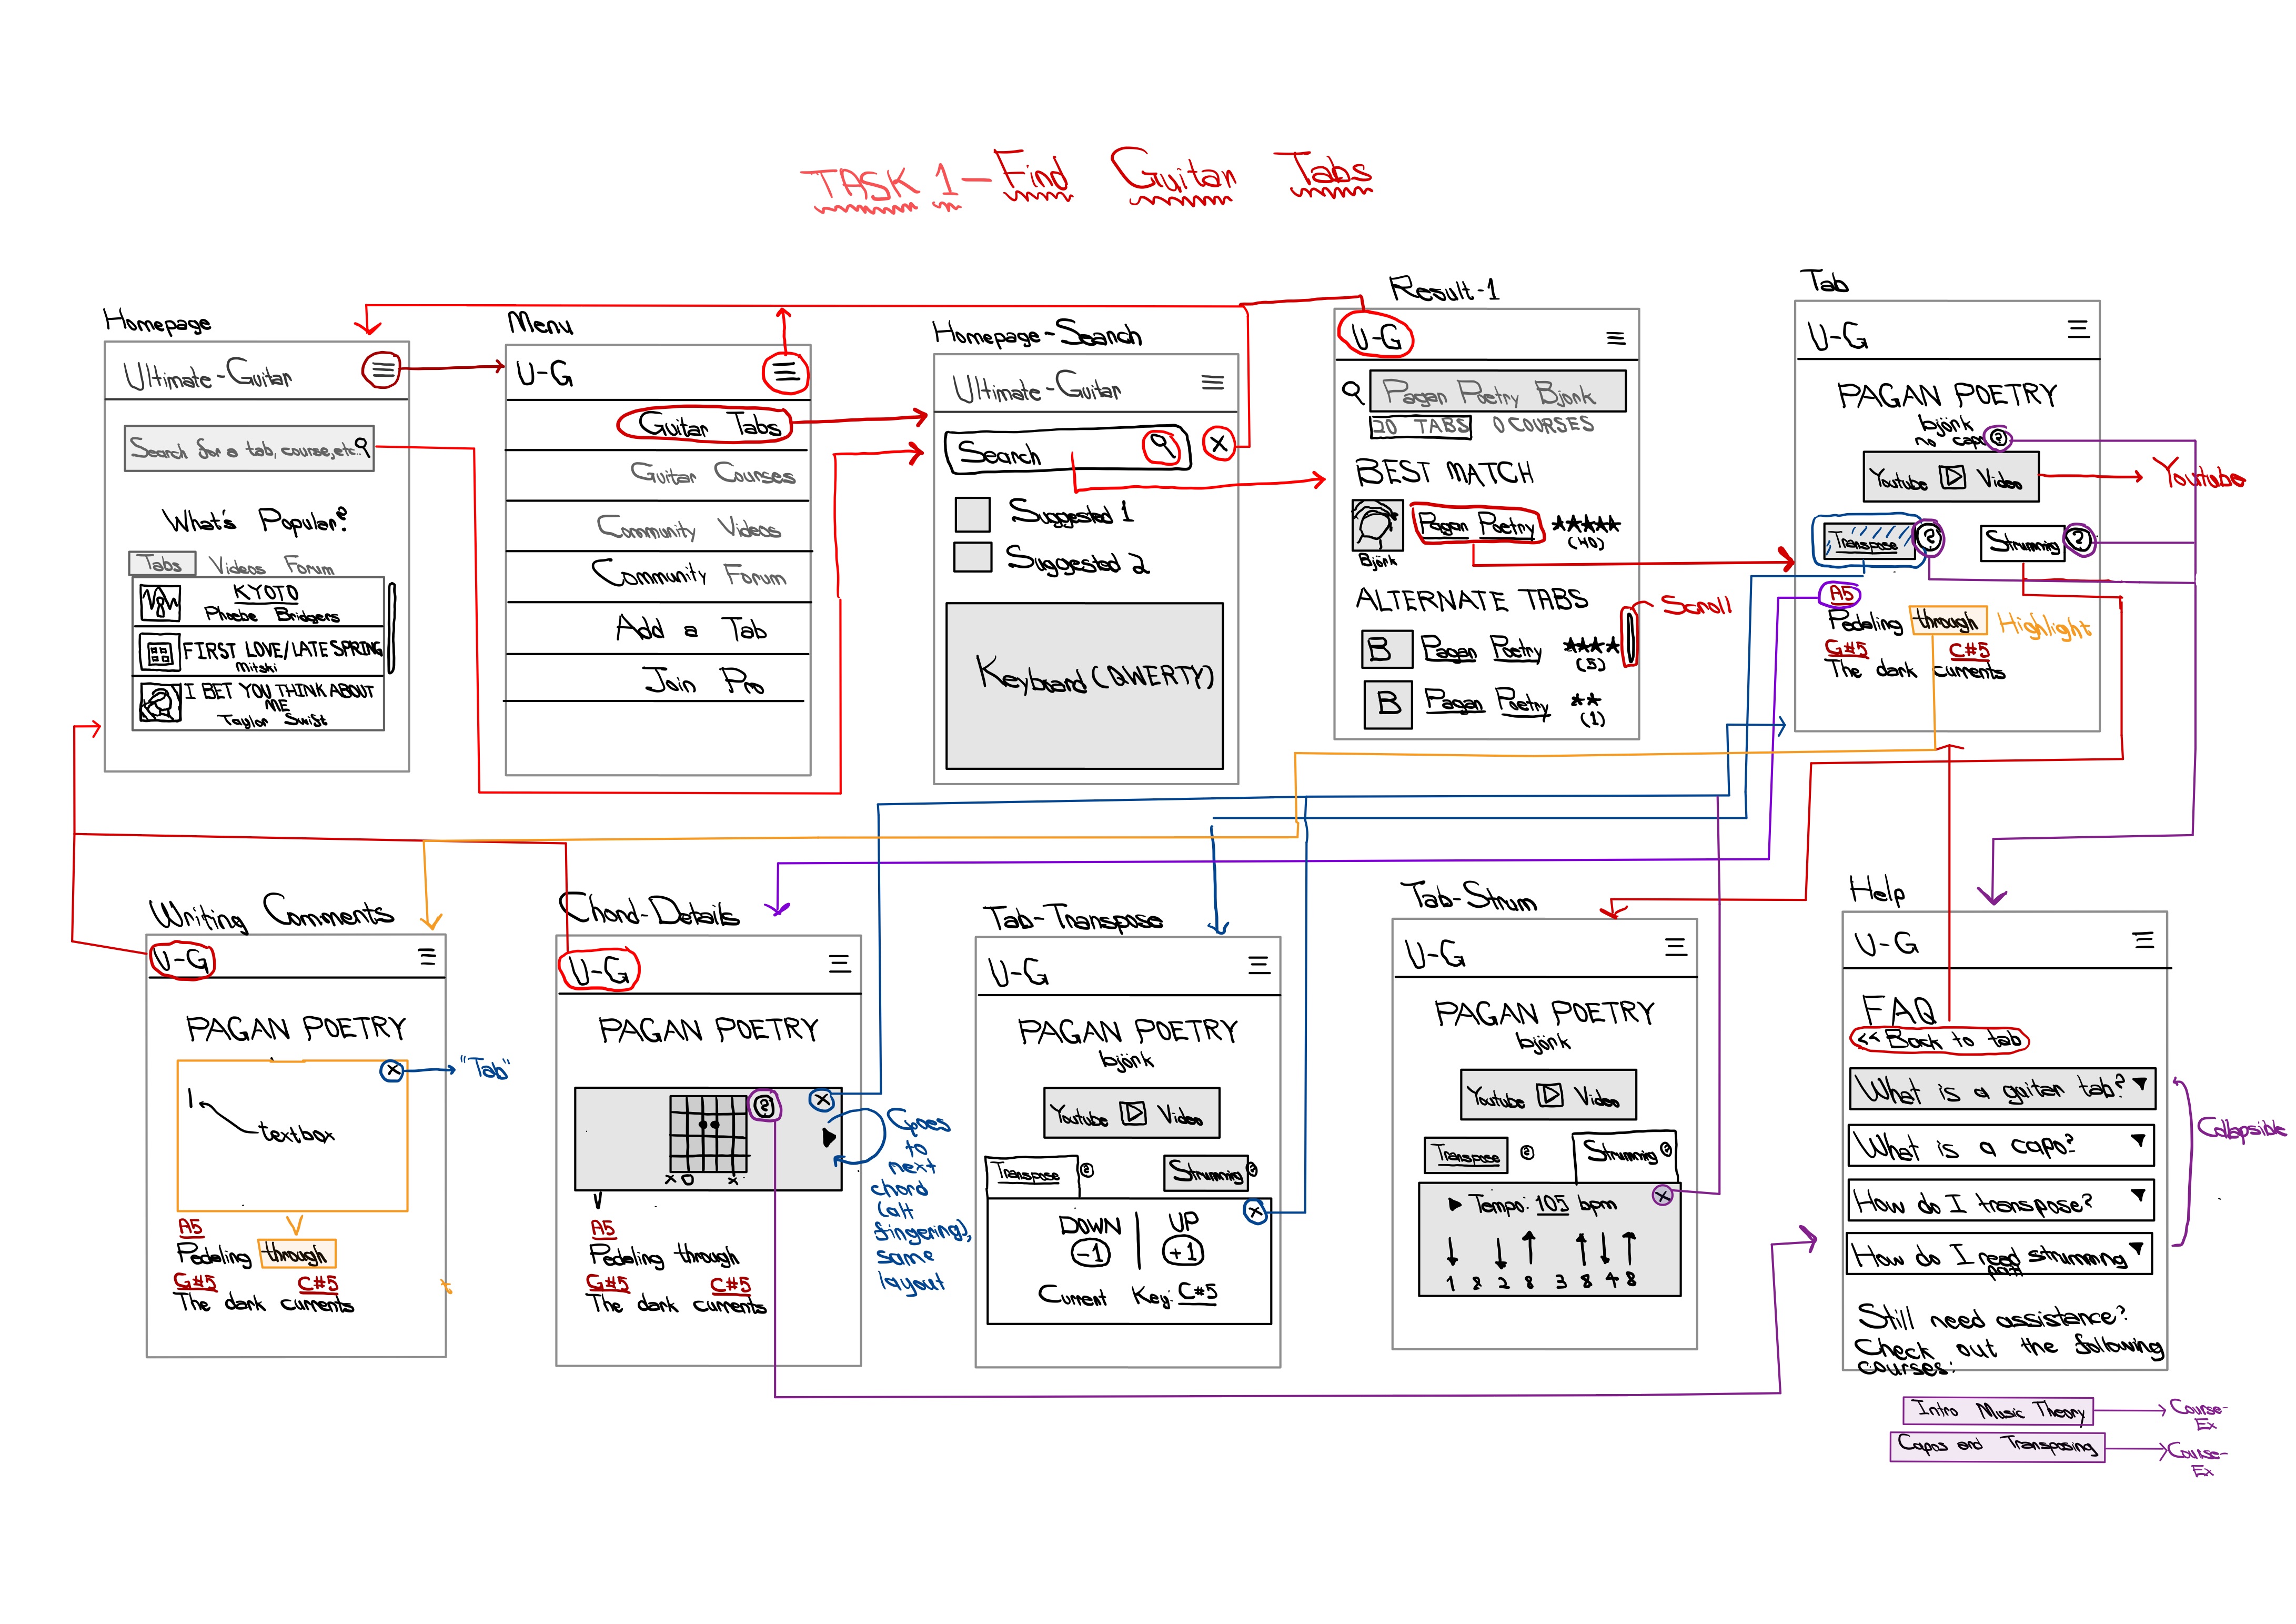 TASK 1 - Find Guitar Tabs
Homepage
Ultimate-Guitar
Search for a tab, course, etc..
What's Popular?
Tabs Videos Forum
KYOTO
Phoebe Bridgers
FIRST LOVE/LATE SPRING
Mitski
I BET YOU THINK ABOUT
ME
Taylor Swift
Menu
U-G
Guitar Tabs
Guitar Courses
Community Videos
Community Forum
Add a Tab
Join Pro
Homepage-Search
Ultimate-Guitar
Search
X
Suggested 1
Suggested 2
Keyboard (QWERTY)
Result-1
U-G
Pagan Poetry Bjork
20 TABS 0 COURSES
BEST MATCH
Pagan Poetry ★★★★★
(40)
Björk
ALTERNATE TABS
Scroll
B Pagan Poetry ★★★★
(5)
B Pagan Poetry ★★
(1)
Tab
U-G
PAGAN POETRY
björk
no capo ?
Youtube Video
Youtube
Transpose ? Strumming ?
A5
Pedaling through Highlight
G#5 C#5
The dark currents
Writing Comments
U-G
PAGAN POETRY
X "Tab"
textbox
A5
Pedaling through
G#5 C#5
The dark currents
Chord-Details
U-G
PAGAN POETRY
? X
x o x
Goes
to
next
chord
(alt
fingering),
same
layout
A5
Pedaling through
G#5 C#5
The dark currents
Tab-Transpose
U-G
PAGAN POETRY
björk
Youtube Video
Transpose ? Strumming ?
X
DOWN UP
-1 +1
Current Key: C#5
Tab-Strum
U-G
PAGAN POETRY
björk
Youtube Video
Transpose ? Strumming ?
Tempo: 105 bpm X
1 & 2 & 3 & 4 &
Help
U-G
FAQ
<< Back to tab
What is a guitar tab?
What is a capo?
How do I transpose?
How do I read strumming
Collapsible
Still need assistance?
Check out the following
courses:
Intro Music Theory
Course-
Ex
Capos and Transposing
Course-
Ex